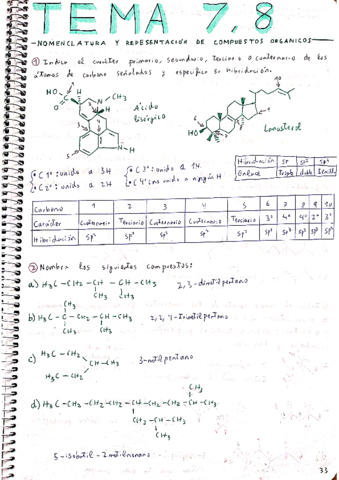 TEMA 7,8
-NOMENCLATURA Y REPRESENTACIÓN DE COMPUESTOS ORGÁNICOS-
① Indica el carácter primario, secundario, terciario o cuaternario de los
átomos de carbono señalados y especifica su hibridación.
Ácido
lisérgico
Lanosterol
C 1º: unido a 3H
C 3º: unido a 1H
C 2º: unido a 2H
C 4º: no unido a ningún H
Hibridación sp sp² sp³
Enlace Triple doble Sencillo
Carbono 1 2 3 4 5 6 7 8 9 10
Carácter Cuaternario Terciario Cuaternario Cuaternario Terciario 3º 4º 4º 2º 3º
Hibridación sp² sp³ sp²
② Nombra los siguientes compuestos:
a) H₃C-CH₂-CH-CH-CH₃ 2,3-dimetilpentano
CH₃ CH₃
CH₃
b) H₃C-C-CH₂-CH-CH₃ 2,2,4-trimetilpentano
CH₃ CH₃
c) H₃C-CH₂
CH-CH₃ 3-metilpentano
H₃C-CH₂
CH₃
d) H₃C-CH₂-CH₂-CH₂-CH-CH₂-CH₂-CH-CH₃
CH₂-CH-CH₃
CH₃
5-isobutil-2-metilnonano
33